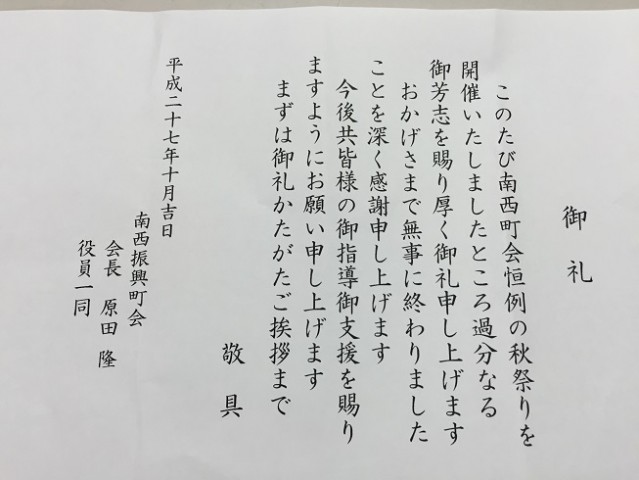 御礼
このたび南西町会恒例の秋祭りを
開催いたしましたところ過分なる
御芳志を賜り厚く御礼申し上げます
おかげさまで無事に終わりました
ことを深く感謝申し上げます
今後共皆様の御指導御支援を賜り
ますようにお願い申し上げます
まずは御礼かたがたご挨拶まで
敬具
平成二十七年十月吉日
南西振興町会
会長 原田 隆
役員一同